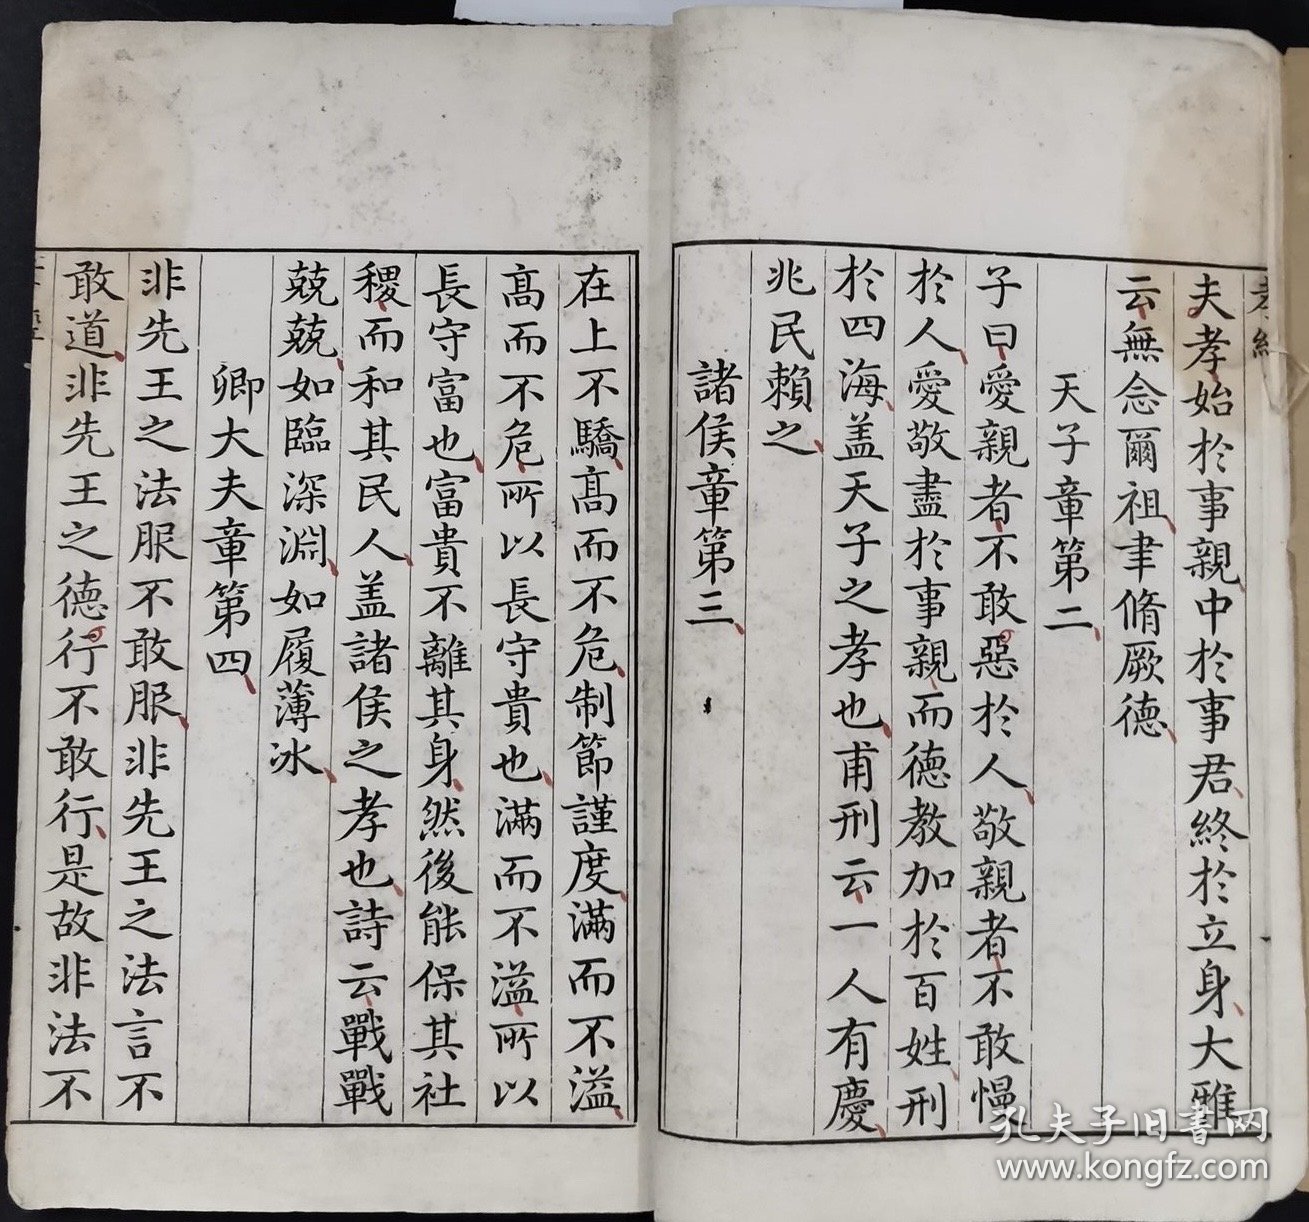 孝經
夫孝始於事親中於事君終於立身大雅
云無念爾祖聿脩厥德
天子章第二
子曰愛親者不敢惡於人敬親者不敢慢
於人愛敬盡於事親而德教加於百姓刑
於四海盖天子之孝也甫刑云一人有慶
兆民賴之
諸侯章第三
在上不驕髙而不危制節謹度滿而不溢
髙而不危所以長守貴也滿而不溢所以
長守富也富貴不離其身然後能保其社
稷而和其民人盖諸侯之孝也詩云戰戰
兢兢如臨深淵如履薄冰
卿大夫章第四
非先王之法服不敢服非先王之法言不
敢道非先王之德行不敢行是故非法不
孔夫子旧书网
www.kongfz.com